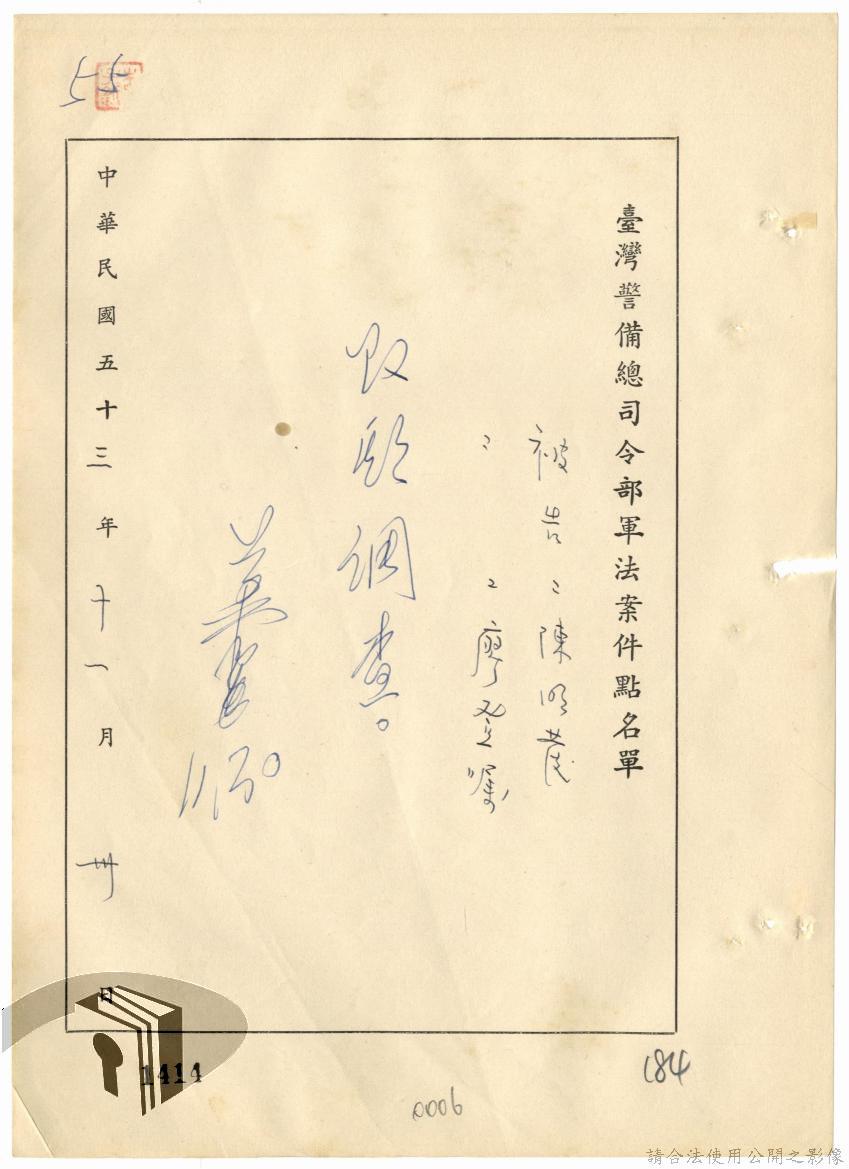 55
臺灣警備總司令部軍法案件點名單
被告：陳明茂
〃：廖登
調查。
11/30
中華民國五十三年十一月卅日
1414
184
0006
請合法使用公開之影像